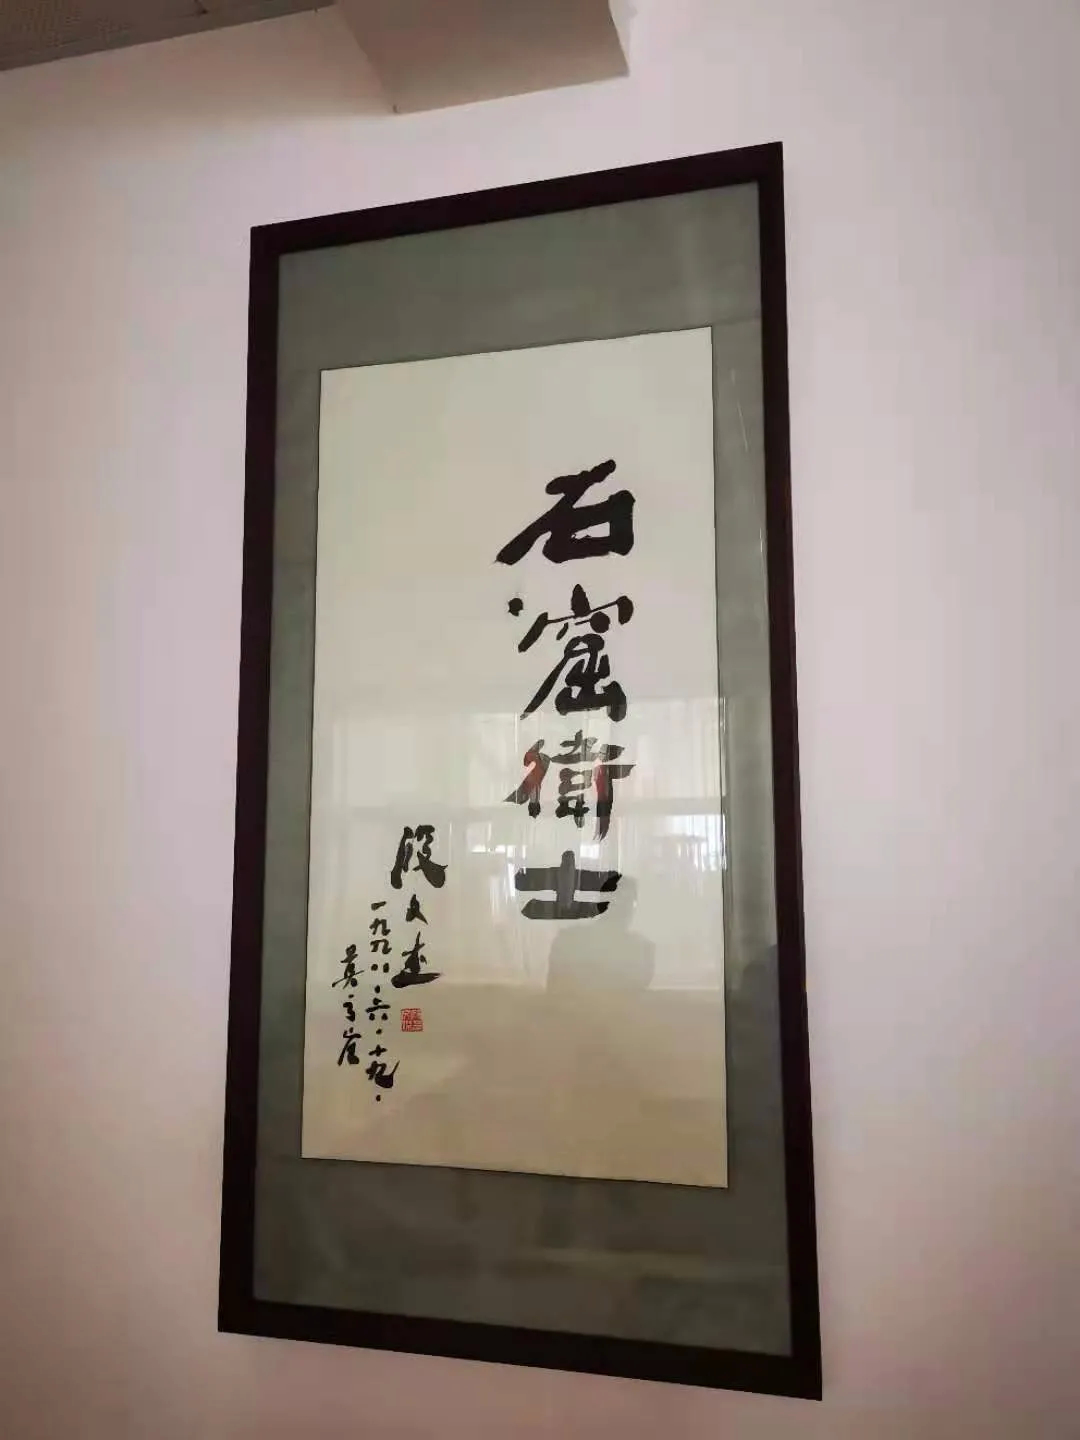 石窟衛士
段文杰
一九九八·六·十九·
莫高窟